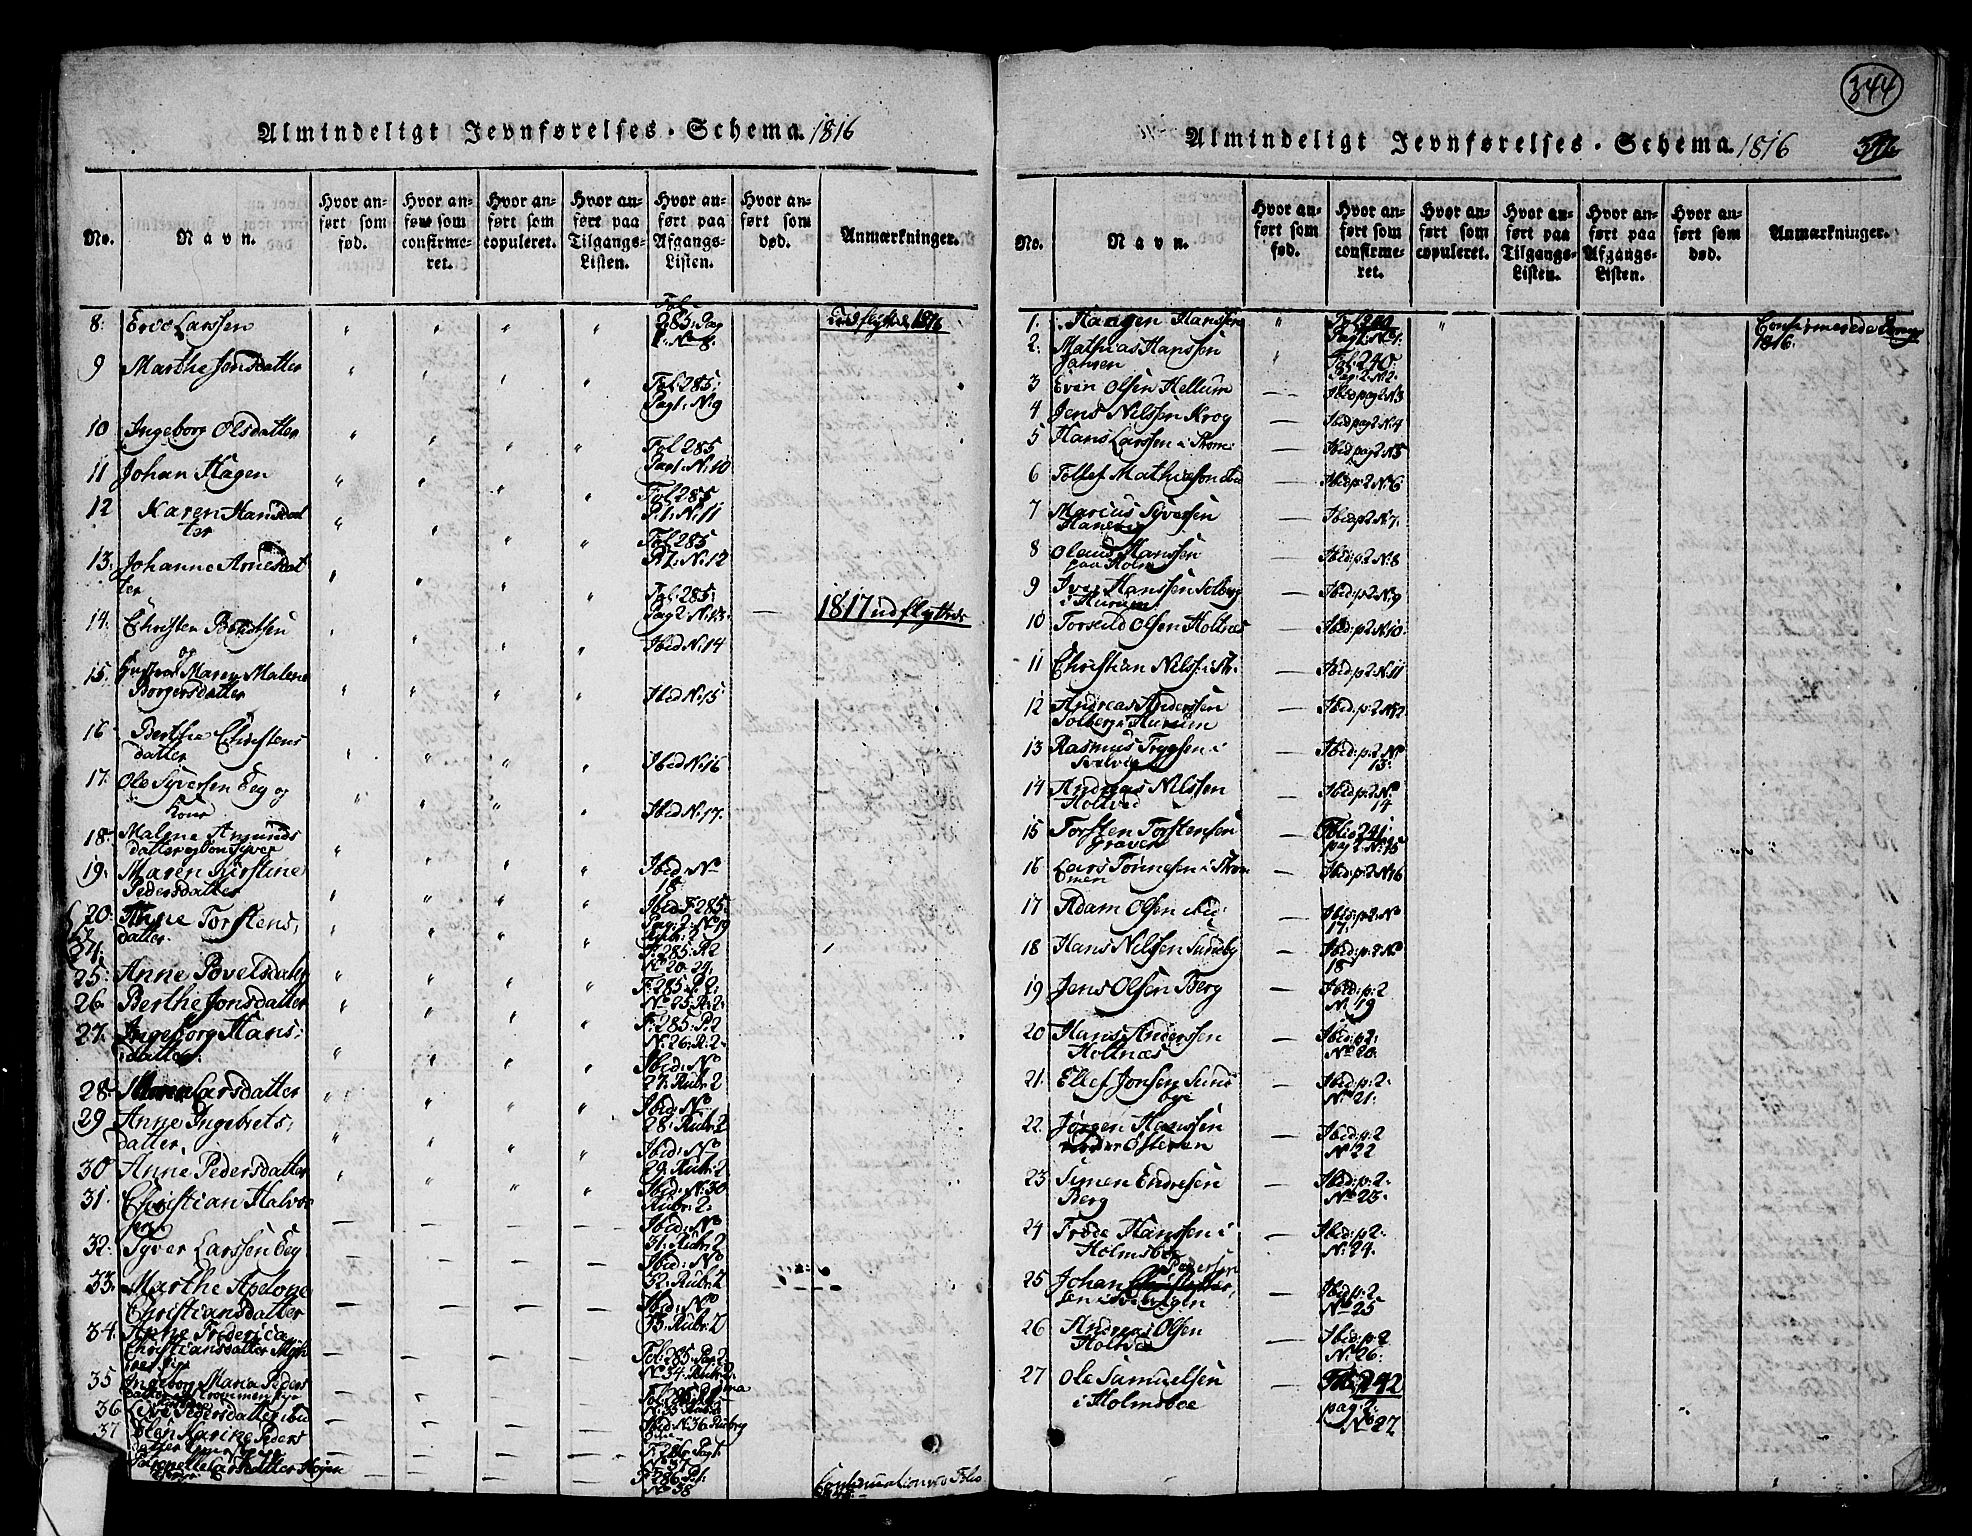 Almindeligt Jevnførelses-Schema. 1816
No.
Navn.
Hvor an-
ført som
fød.
Hvor an-
ført som
confirme-
ret.
Hvor an-
ført som
copuleret.
Hvor an-
ført paa
Tilgangs-
Listen.
Hvor an-
ført paa
Afgangs-
Listen.
Hvor an-
ført som
død.
Anmærkninger.
8. Larssen Fol 285: Pag 1: No 8. 1816
9 Marthe Jonsdatter Fol 285: Pag 1: N: 9
10 Ingeborg Olsdatter Fol 285 Pag 1: N: 10
11 Johan Hagen Fol 285 P: 1: N: 11
12 Karen Hansdat
ter Fol 285 P: 1: N: 12
13. Johanne Arnesdat
ter Fol 285: Pag 2: N: 13. 1817 udflyttede
14. Christen Ibid N: 14
15. og Maren Malene
Borgersdatter Ibid N: 15
16 Berthe Christens
datter Ibid N: 16
17. Ole Syversen Eeg og
Kone Ibid N: 17.
18. Malene Amunds
datter og Søn Syver Ibid: No 18
19. Maren Kirstine
Pedersdatter Ibid F 285 Pag: 2: No 19
20. Anne Torstens,
datter. F: 285: P. 2 No 20-24.
24.
25. Anne Povelsdatter F: 285: P. 2: No 25: R: 2:
26. Berthe Jonsdatter F: 285: P: 2 N: 26: R: 2:
27. Ingeborg Hans:
datter Ibid: No 27. Rubr: 2
28. Larsdatter Ibid: No 28: Rubr: 2
29. Anne Ingebrets:
datter Ibid: No 29. Rubr: 2.
30 Anne Pedersdatter Ibid: N: 30 Rubr: 2.
31. Christian Halvor
sen Ibid: No 31. Rubr: 2
32. Syver Larssen Eeg Ibid: No 32: Rubr: 2
33. Marthe Apelone
Christiansdatter Ibid: No 33. Rubr: 2
34. Anne Frederica
Christiansdatter Fol: 285: Pag 2 No 34. Rubr: 2.
35 Ingeborg Maria Peders
datter
36 Pedersdatter ibid Ibid: N: 36
37 Elen Karine Peders
datter F: 286: Pag 1 No 37
F: 286 P 1: No 38
Continuation Folio
344
Almindeligt Jevnførelses-Schema. 1816
No.
Navn.
Hvor an-
ført som
fød.
Hvor an-
ført som
confirme-
ret.
Hvor an-
ført som
copuleret.
Hvor an-
ført paa
Tilgangs-
Listen.
Hvor an-
ført paa
Afgangs-
Listen.
Hvor an-
ført som
død.
Anmærkninger.
1. Haagen Hanssen Confirmerede
1816.
2. Mathias Hanssen
Jansen Fol 240: Pag: 2: N: 2.
3 Even Olsen Hellum Ibid pag 2 N 3
4 Jens Nilssen Krog Ibid pag 2 N: 4
5 Hans Larssen i Ibid pag 2 N 5
6 Tollef Mathiesson ibid Ibid p: 2 N: 6
7 Marius Syversen Ibid p 2 N 7.
8 Olaus Hanssen
paa Holm Ibid: p: 2 N: 8
9 Iver Hanssen Solberg
i Hurum Ibid: p: 2 N: 9
10 Torkild Olsen Holtnæs Ibid: p: 2 N: 10.
11 Christian Nilss: i St: Ibid: p: 2 N: 11
12 Andreas Anderssen
Solberg i Hurum Ibid: p: 2 N: 12
13 Rasmus Trygsen i
Svelvig Ibid: p: 2 No 13:
14 Andreas Nilssen
Holtved Ibid: p: 2 No 14
15 Torsten Torstensen
Graven Folio 241: pag 2: N: 15
16 Lars Tønnesen i Strøm
men Ibid: p: 2 N 16
17 Adam Olsen ibid: Ibid: p: 2 No 17.
18 Hans Nilssen Sundby Ibid: p: 2 No 18
19 Jens Olsen Berg Ibid: p: 2 N: 19
20 Hans Anderssen
Holtnæs Ibid: p: 2. No 20.
21. Ellef Jonsen Sund
bye Ibid: p: 2: No 21:
22. Jørgen Hanssen
Østeren Ibid: p: 2 No 22
23 Simen Endresen
Berg Ibid: p: 2: No 23:
24 Hanssen i
Holmsboe Ibid: p: 2: N: 24.
25 Johan Pedersen
Ibid: p: 2. No 25
26 Andreas Olsen
Holtved Ibid: p: 2 No 26:
27 Ole Samuelsen
i Holmsboe Fol: 242 pag 1: No 27